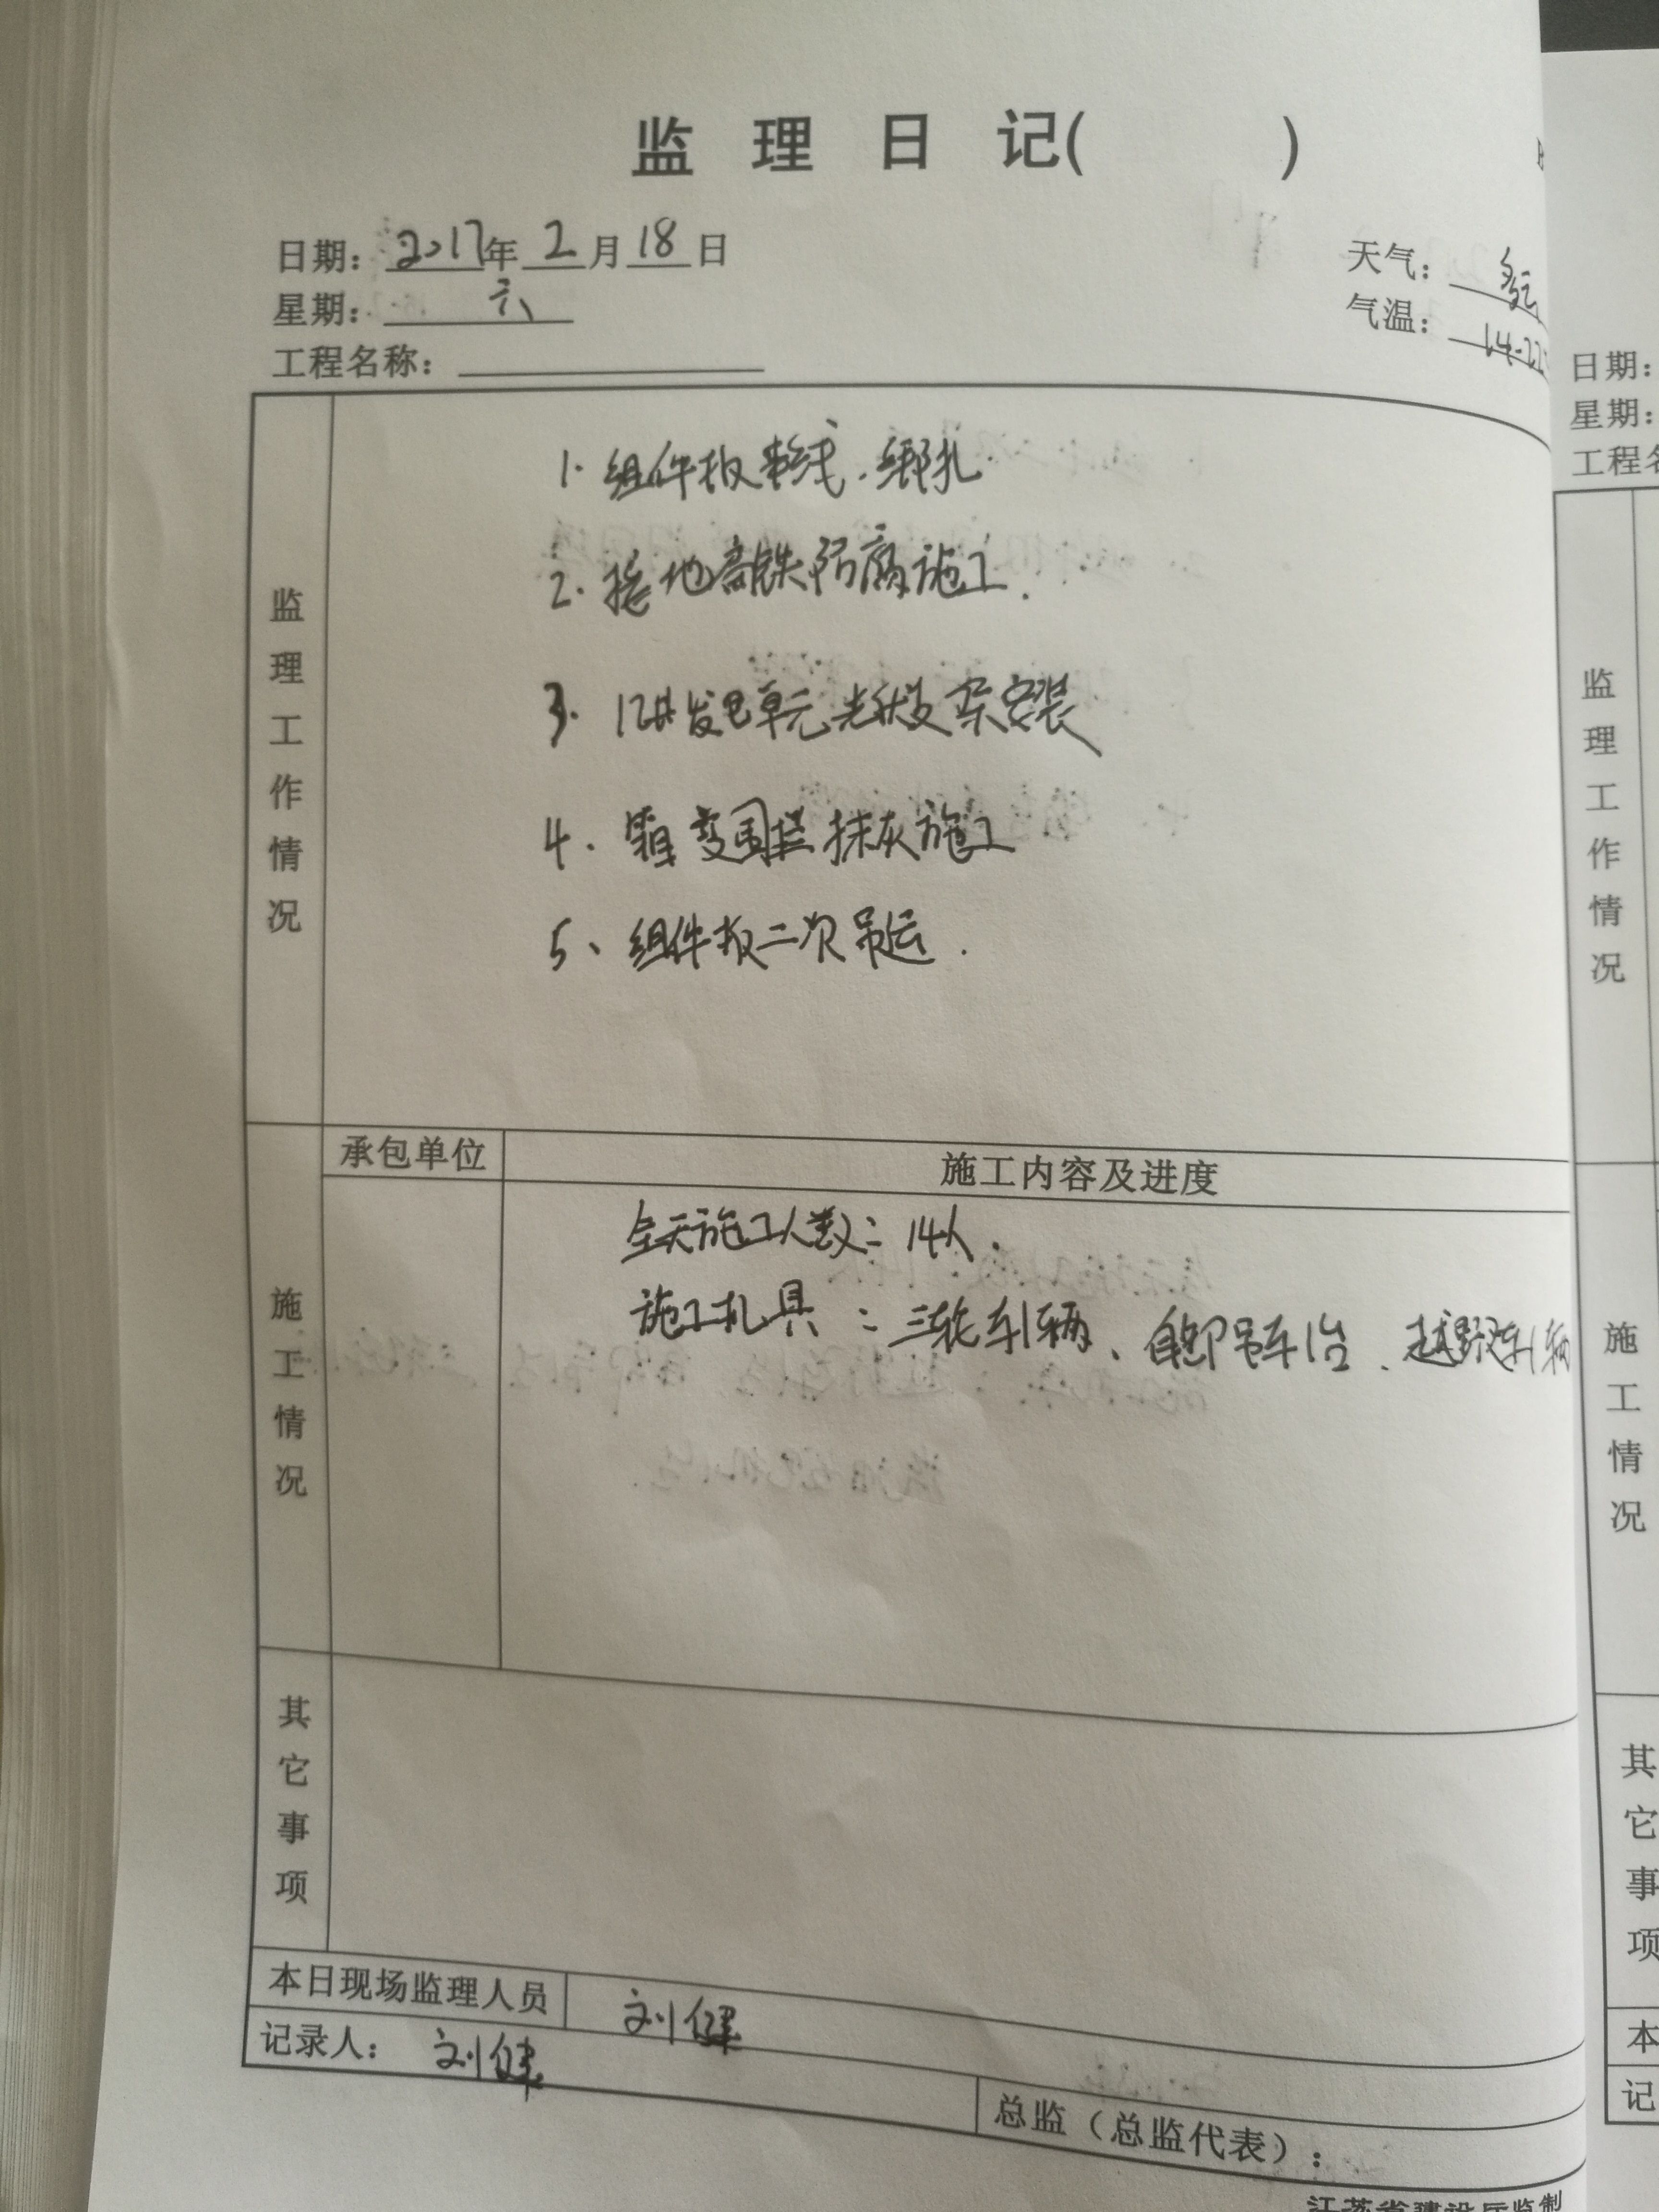 监理日记( )
日期：2017年2月18日
天气：多云
星期：六
气温：14-22
工程名称：
监理工作情况
1. 组件板整线、绑扎
2. 接地扁铁防腐施工.
3. 12#发电单元光伏支架安装
4. 箱变围栏抹灰施工
5、组件板二次吊运.
承包单位
施工内容及进度
施工情况
全天施工人数：14人.
施工机具：三轮车1辆、自卸吊车1台、越野车1辆
其它事项
本日现场监理人员 刘健
记录人：刘健
总监（总监代表）：
江苏省建设厅监制
日期：
星期：
工程名
监理工作情况
施工情况
其它事项
本
记